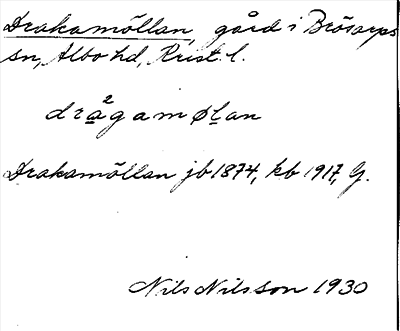 Drakamöllan, gård i Brösarps
sn, Albo hd, Krist. l.
dra²gamølan
Drakamöllan jb 1874, kb 1917, G.
Nils Nilsson 1930